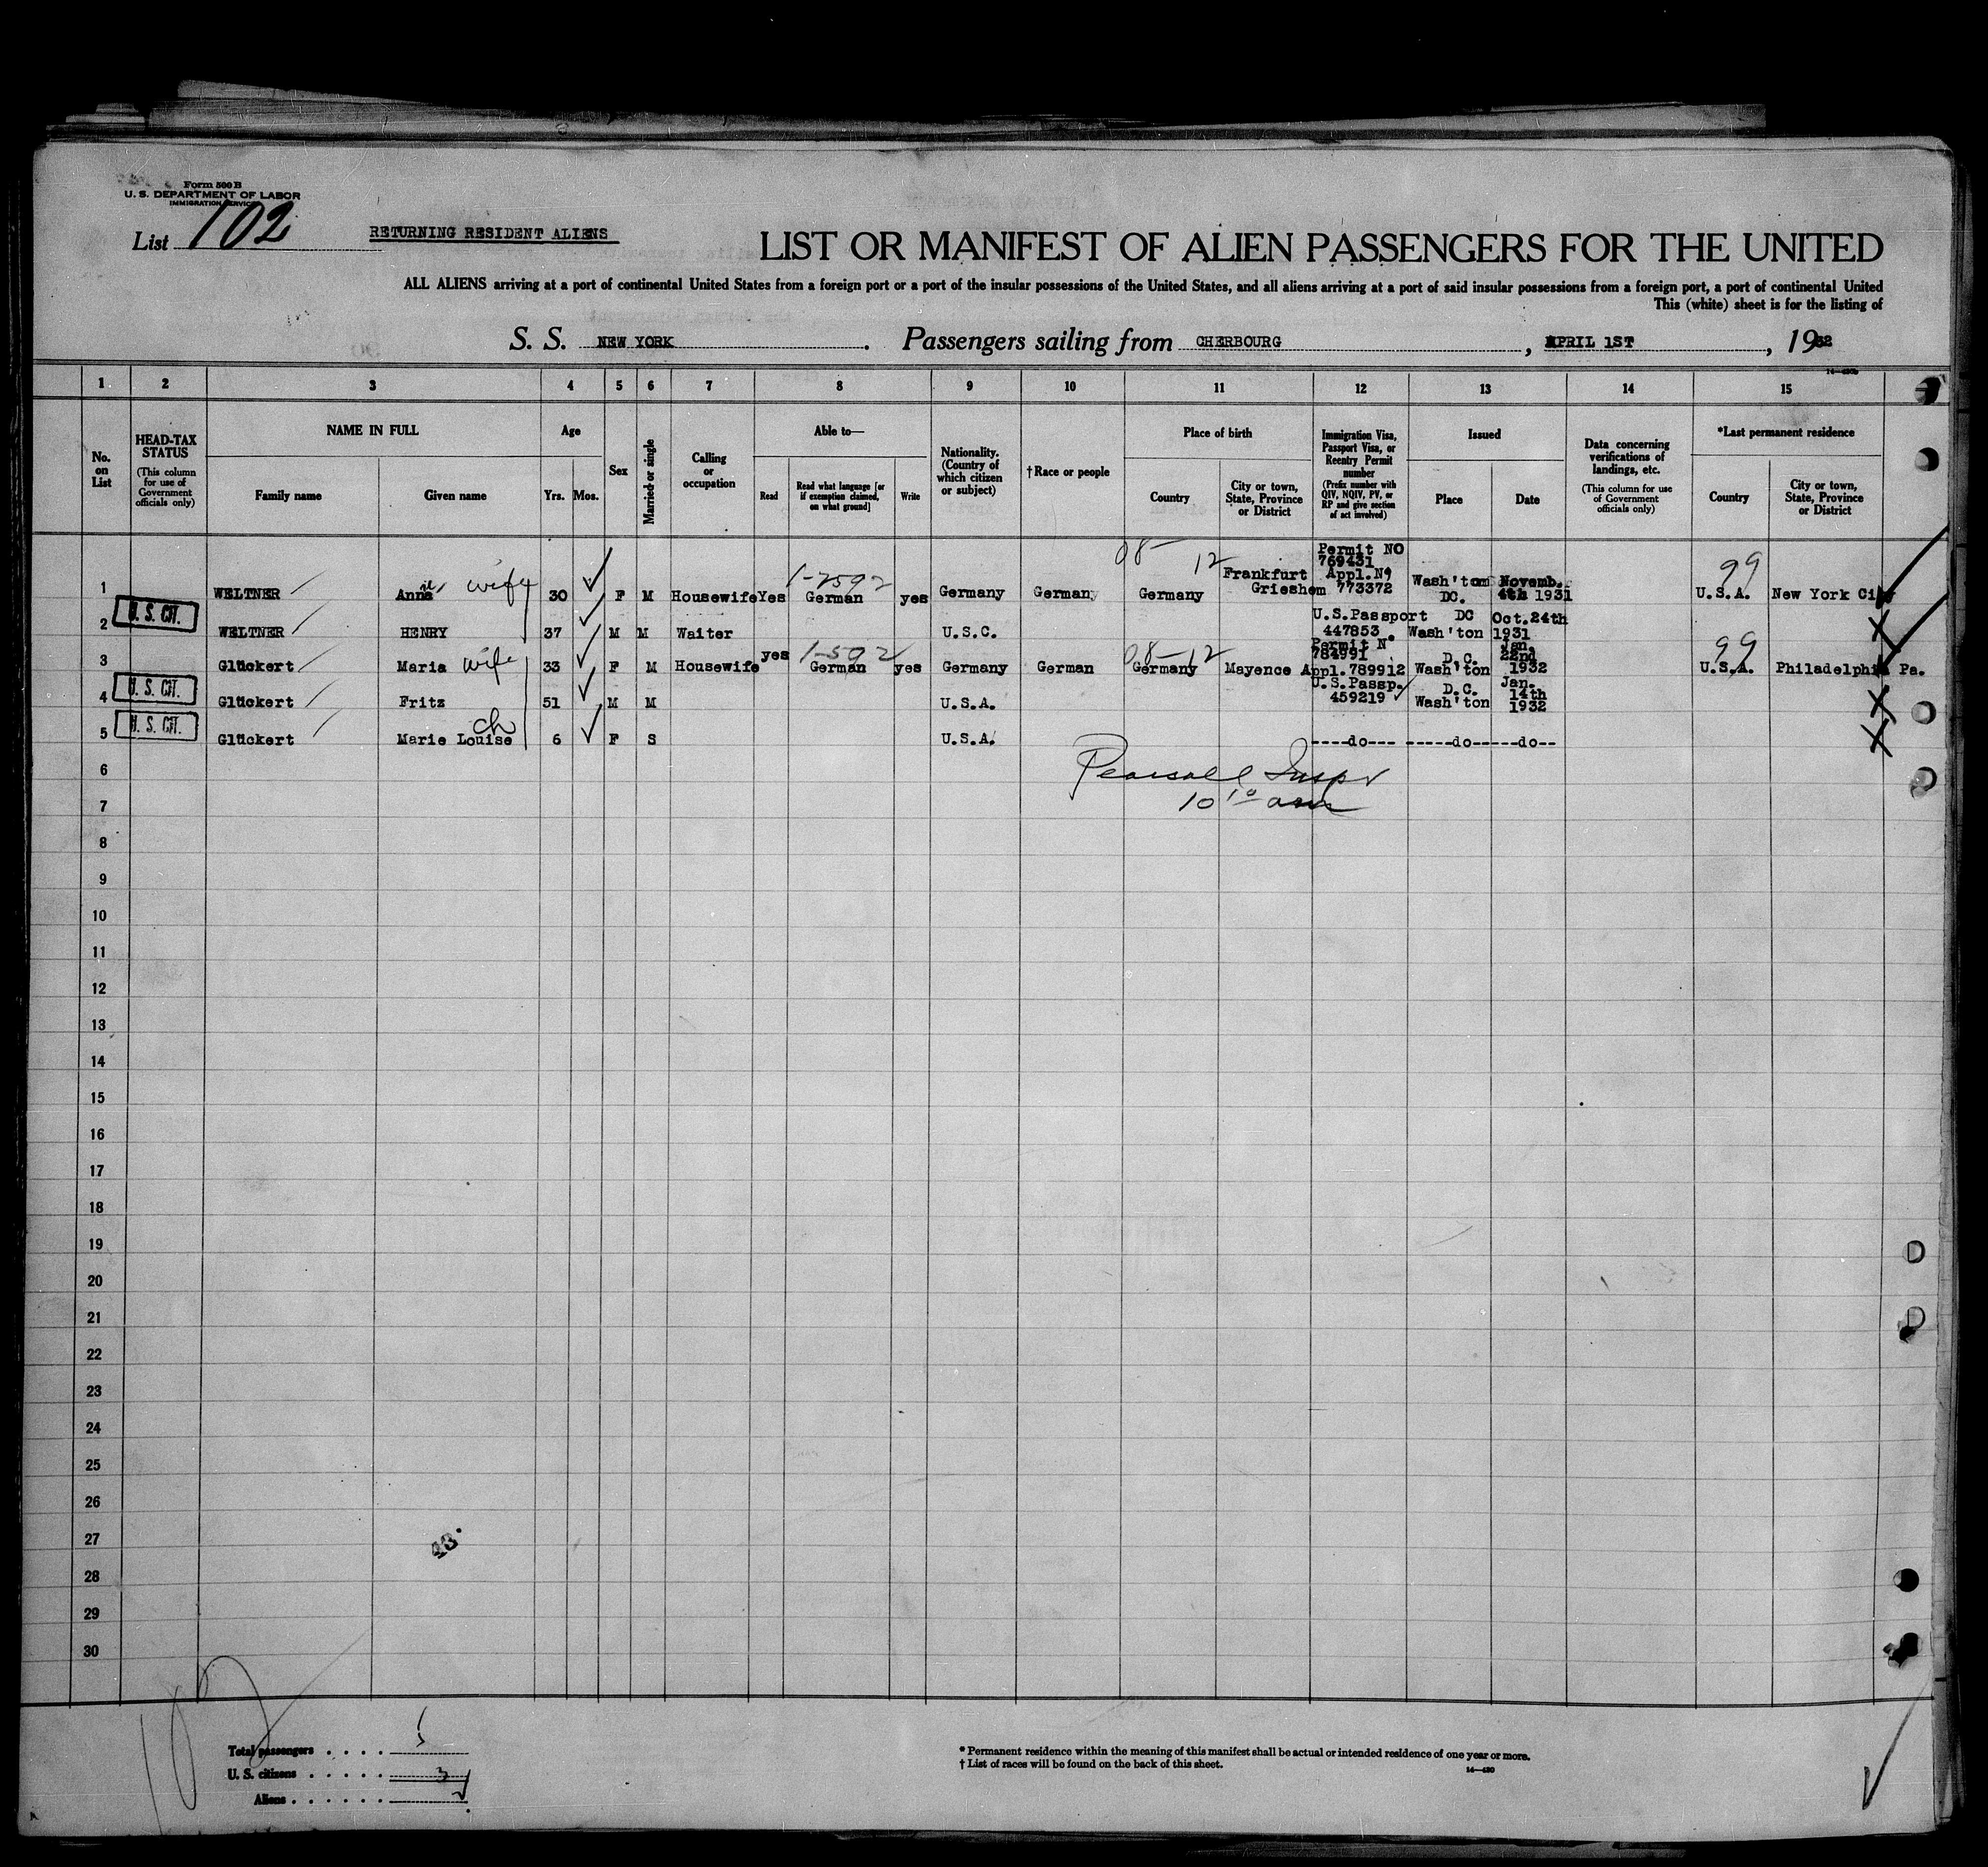 Form 500 B
U. S. DEPARTMENT OF LABOR
IMMIGRATION SERVICE
List 102
RETURNING RESIDENT ALIENS
LIST OR MANIFEST OF ALIEN PASSENGERS FOR THE UNITED
ALL ALIENS arriving at a port of continental United States from a foreign port or a port of the insular possessions of the United States, and all aliens arriving at a port of said insular possessions from a foreign port, a port of continental United
This (white) sheet is for the listing of
S. S. NEW YORK. Passengers sailing from CHERBOURG, APRIL 1ST, 1932
1 2 3 4 5 6 7 8 9 10 11 12 13 14 15
No. on List
HEAD-TAX STATUS
(This column for use of Government officials only)
NAME IN FULL
Family name Given name
Age
Yrs. Mos.
Sex
Married or single
Calling or occupation
Able to—
Read
Read what language [or if exemption claimed, on what ground]
Write
Nationality. (Country of which citizen or subject)
† Race or people
Place of birth
Country
City or town, State, Province or District
Immigration Visa, Passport Visa, or Reentry Permit number
(Prefix number with QIV, NQIV, PV, or RP and give section of act involved)
Issued
Place Date
Data concerning verifications of landings, etc.
(This column for use of Government officials only)
*Last permanent residence
Country
City or town, State, Province or District
1 WELTNER Anna wife 30 F M Housewife Yes 1-2592 German yes Germany German 08-12 Germany Frankfurt Grieshem Permit NO 769431 Appl.No 773372 Wash'ton DC. Novemb. 4th 1931 99 U.S.A. New York City
2 U. S. CIT. WELTNER HENRY 37 M M Waiter U.S.C. U.S.Passport 447853. DC Wash'ton Oct.24th 1931
3 Glückert Maria wife 33 F M Housewife yes 1-592 German yes Germany German 08-12 Germany Mayence Permit N 784991 Appl.789912 D.C. Wash'ton Jan. 22nd 1932 99 U.S.A. Philadelphia Pa.
4 U. S. CIT. Glückert Fritz 51 M M U.S.A. U.S.Passp. 459219 D.C. Wash'ton Jan. 14th 1932
5 U. S. CIT. Glückert Marie Louise ch 6 F S U.S.A. ----do--- -----do-----do--
6
Pearsall Inspr
7
10 10 am
8
9
10
11
12
13
14
15
16
17
18
19
20
21
22
23
24
25
26
27
28
29
30
43
Total passengers . . . . 5
U. S. citizens . . . . . 3
Aliens . . . . . .
* Permanent residence within the meaning of this manifest shall be actual or intended residence of one year or more.
† List of races will be found on the back of this sheet.
14—430